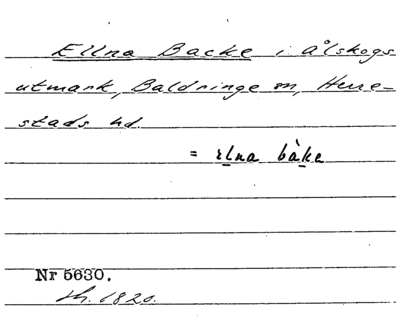 Ellna Backe i Ålskogs
utmark, Baldringe sn, Herre-
stads hd.
= ɛlna bàke
Nr 5630.
1820.